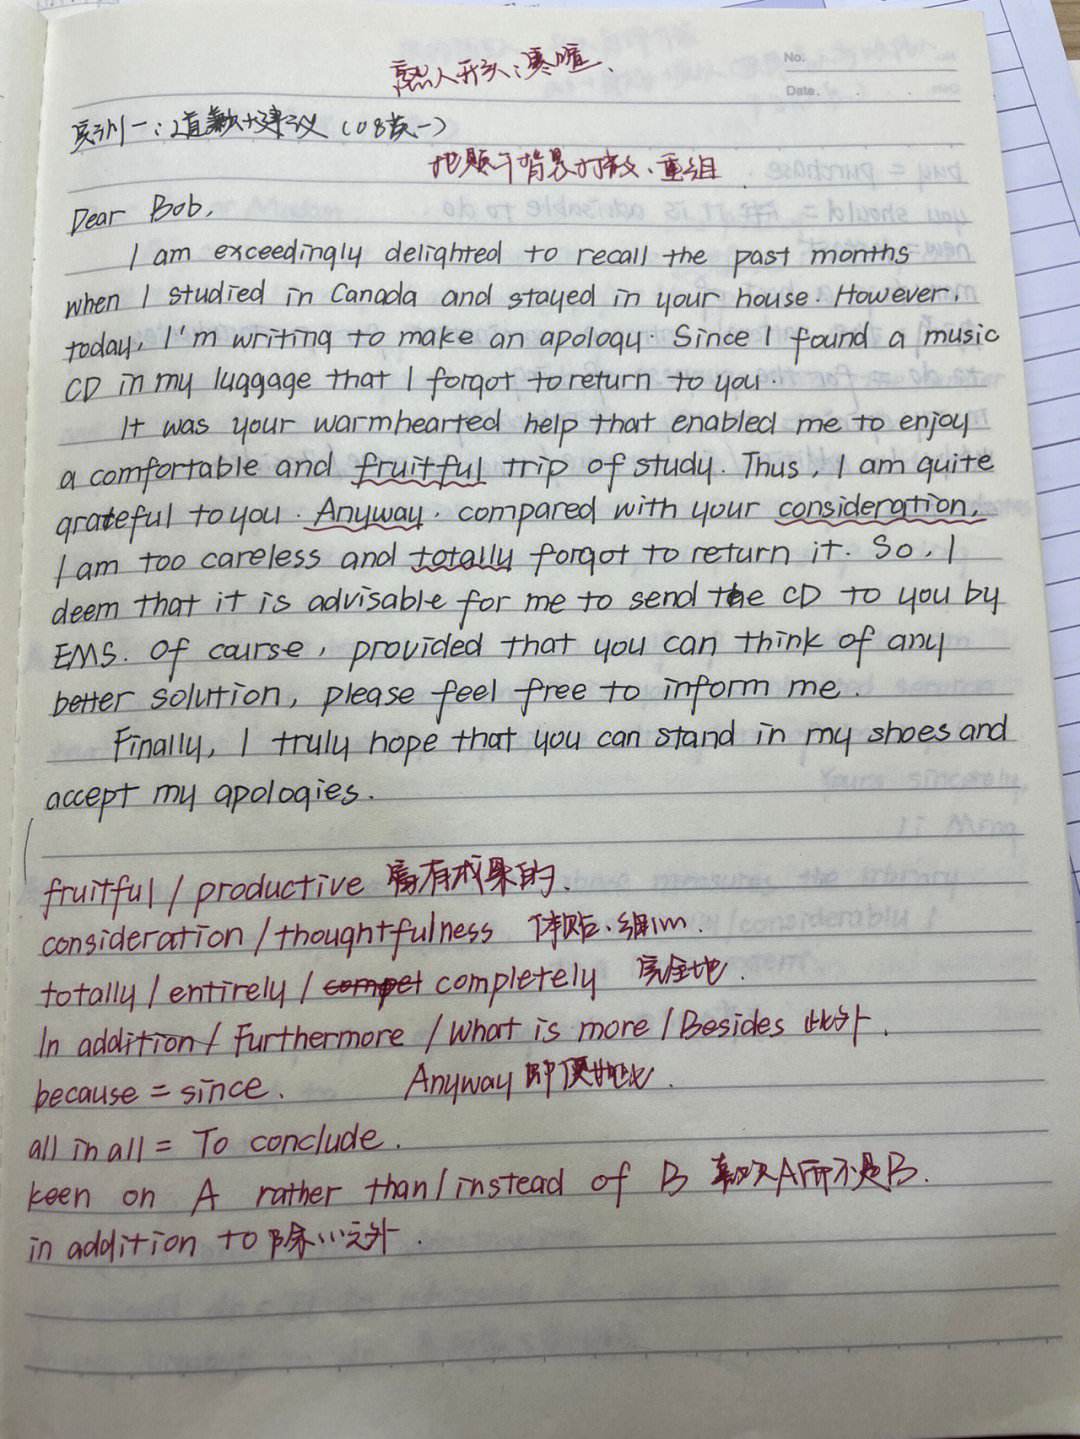 熟人开头:寒暄.
No.
Date.
实例一:道歉+建议(08英一)
把题干背景打散、重组
Dear Bob,
I am exceedingly delighted to recall the past months
when I studied in Canada and stayed in your house. However,
today, I'm writing to make an apology. Since I found a music
CD in my luggage that I forgot to return to you.
It was your warmhearted help that enabled me to enjoy
a comfortable and fruitful trip of study. Thus, I am quite
grateful to you. Anyway, compared with your consideration,
I am too careless and totally forgot to return it. So, I
deem that it is advisable for me to send the CD to you by
EMS. Of course, provided that you can think of any
better solution, please feel free to inform me.
Finally, I truly hope that you can stand in my shoes and
accept my apologies.
fruitful / productive 富有成果的.
consideration / thoughtfulness 体贴、细心.
totally / entirely / completely 完全地.
In addition / Furthermore / What is more / Besides 此外.
because = since. Anyway 即便如此.
all in all = To conclude.
keen on A rather than / instead of B 喜欢A而不是B.
in addition to 除…之外.